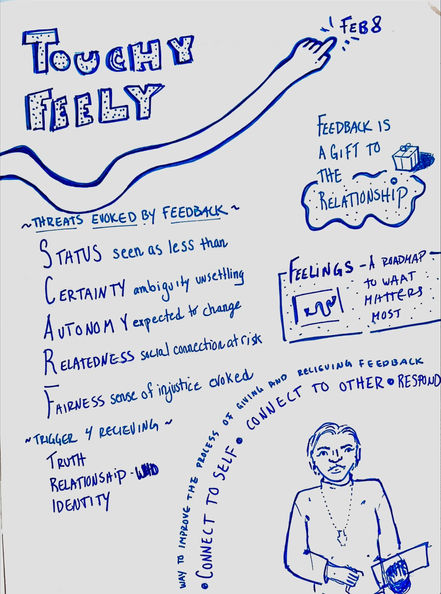 TOUCHY
FEELY
FEB 8
FEEDBACK IS
A GIFT TO
THE
RELATIONSHIP
~THREATS EVOKED BY FEEDBACK~
STATUS seen as less than
CERTAINTY ambiguity unsettling
AUTONOMY expected to change
RELATEDNESS social connection at risk
FAIRNESS sense of injustice evoked
FEELINGS - A ROADMAP
TO WHAT
MATTERS
MOST
~TRIGGER 4 RECIEVING~
TRUTH
RELATIONSHIP - WHO
IDENTITY
WAY TO IMPROVE THE PROCESS OF GIVING AND RECIEVING FEEDBACK
• CONNECT TO SELF • CONNECT TO OTHER • RESPOND